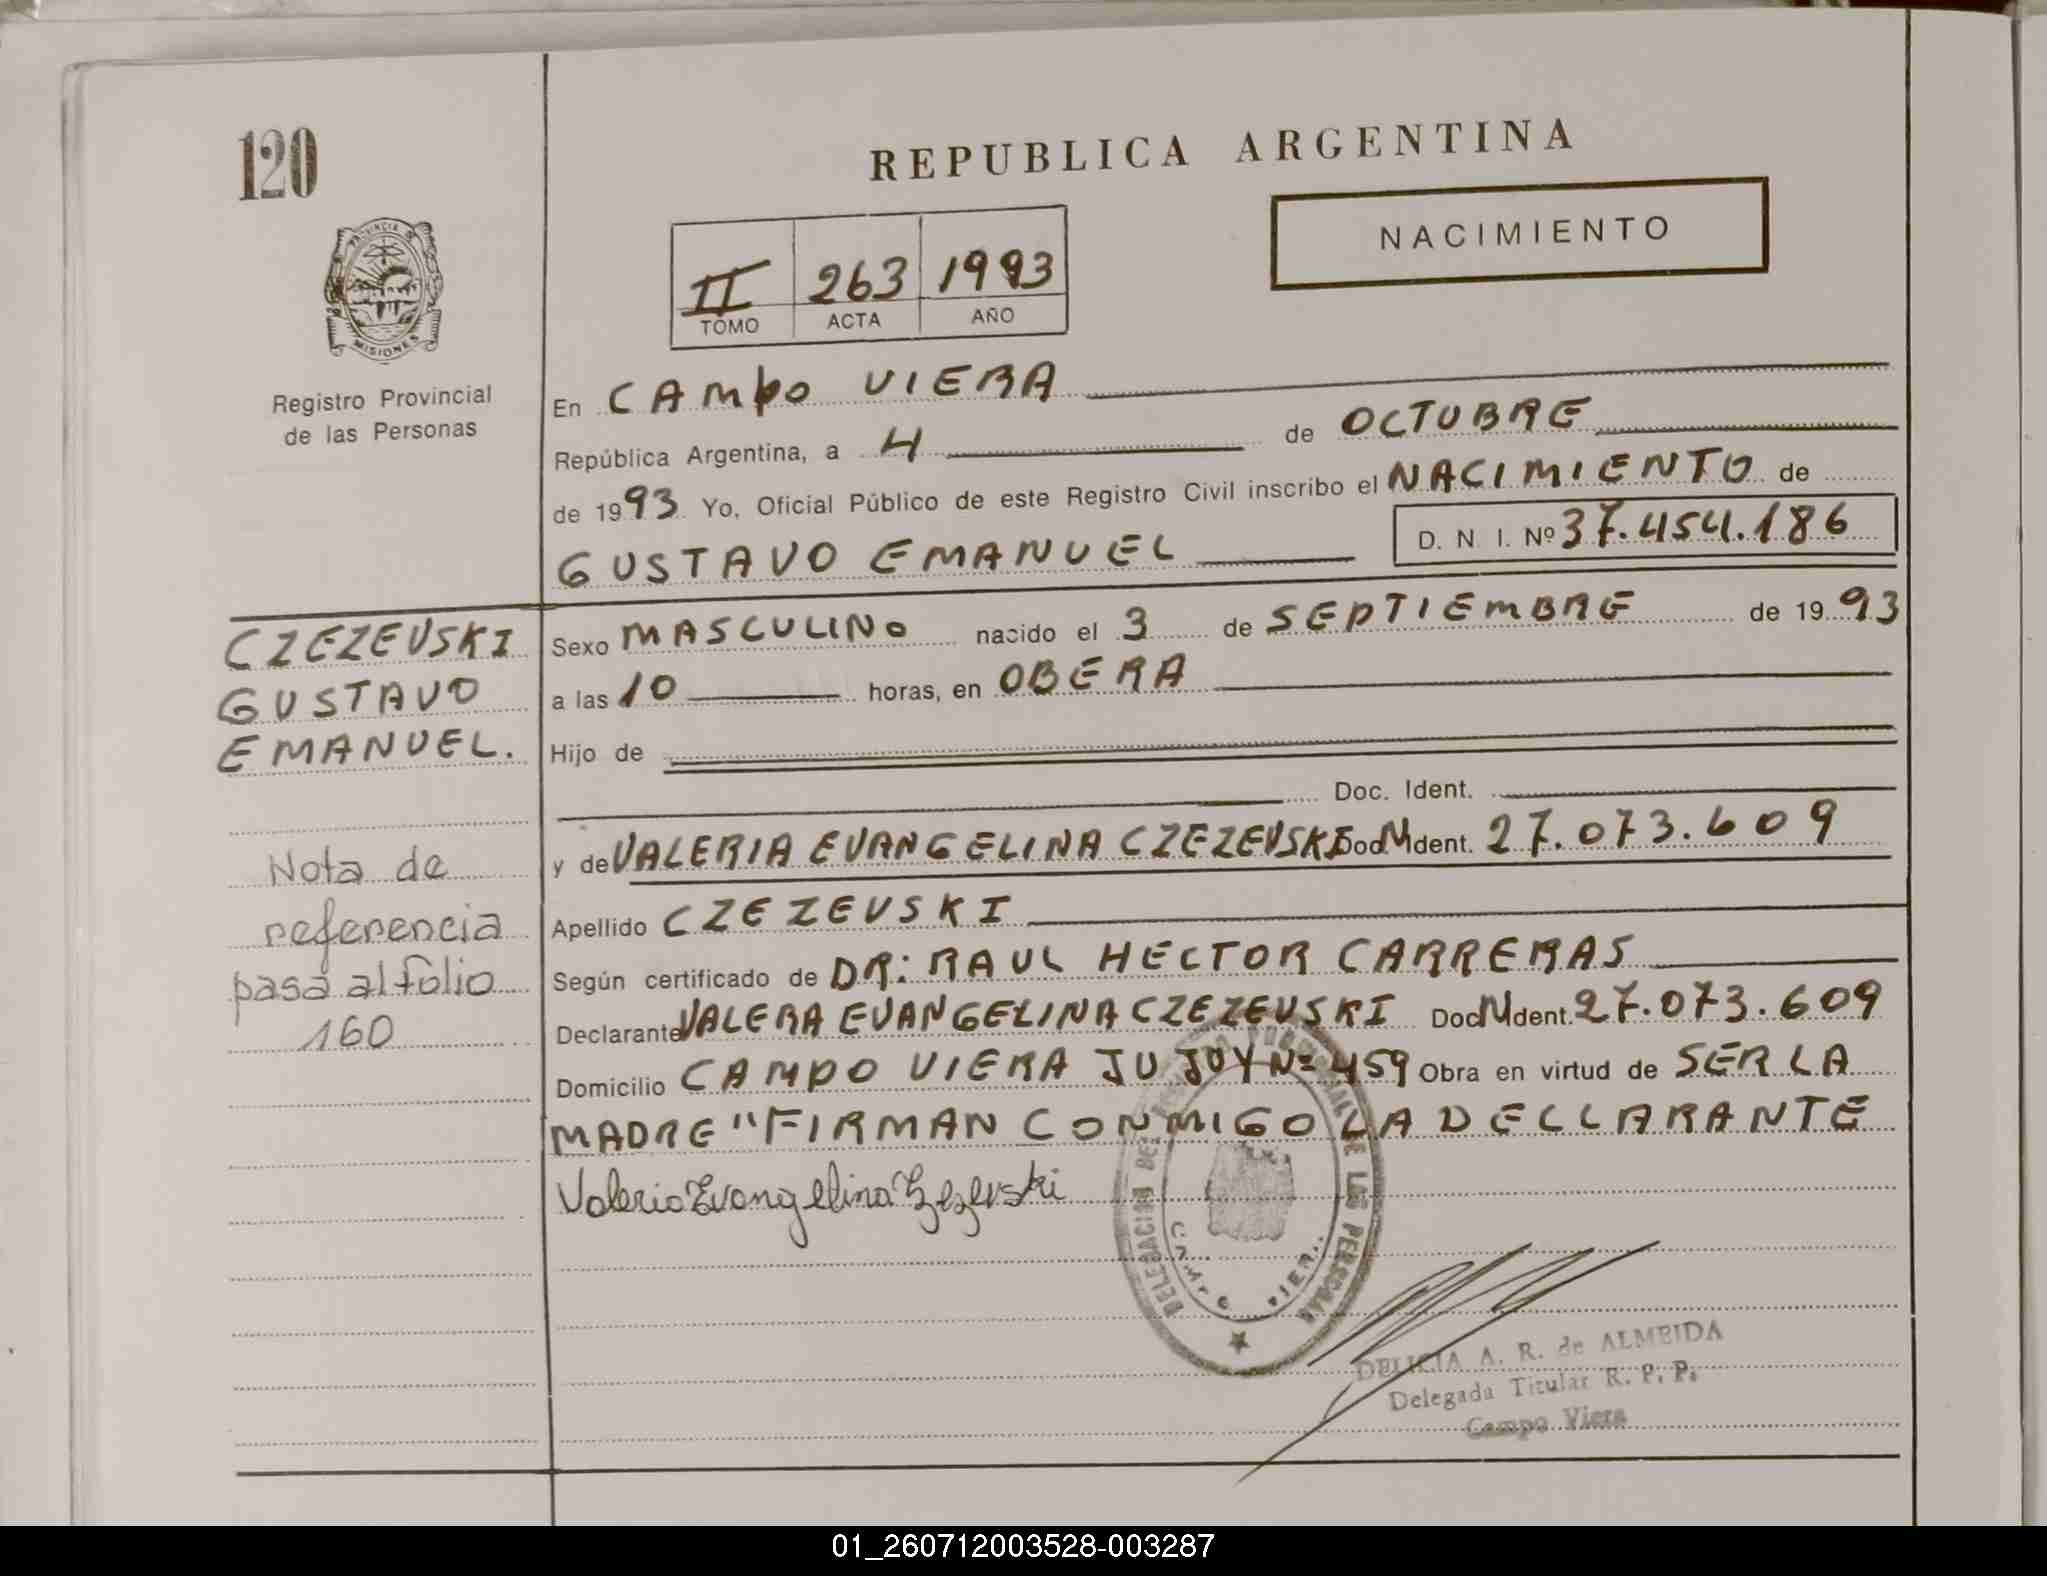 120
REPUBLICA ARGENTINA
NACIMIENTO
II 263 1993
TOMO ACTA AÑO
PROVINCIA DE
MISIONES
Registro Provincial
de las Personas
En CAMPO VIERA
República Argentina, a 4 de OCTUBRE
de 1993 Yo, Oficial Público de este Registro Civil inscribo el NACIMIENTO de
GUSTAVO EMANUEL D. N. I. Nº 37.454.186
CZEZEVSKI
GUSTAVO
EMANUEL.
Nota de
referencia
pasa al folio
160
Sexo MASCULINO nacido el 3 de SEPTIEMBRE de 1993
a las 10 horas, en OBERA
Hijo de
Doc. Ident.
y de VALERIA EVANGELINA CZEZEVSKI Doc. Ident. 27.073.609
Apellido CZEZEVSKI
Según certificado de DR: RAUL HECTOR CARRERAS
Declarante VALERA EVANGELINA CZEZEVSKI Doc Ident. 27.073.609
Domicilio CAMPO VIERA JUJUY Nº 459 Obra en virtud de SER LA
MADRE "FIRMAN CONMIGO LA DECLLARANTE
Valeria Evangelina Czezevski
DELEGACION DEL REGISTRO PROVINCIAL DE LAS PERSONAS
CAMPO VIERA
DELICIA A. R. de ALMEIDA
Delegada Titular R. P. P.
Campo Viera
01_260712003528-003287